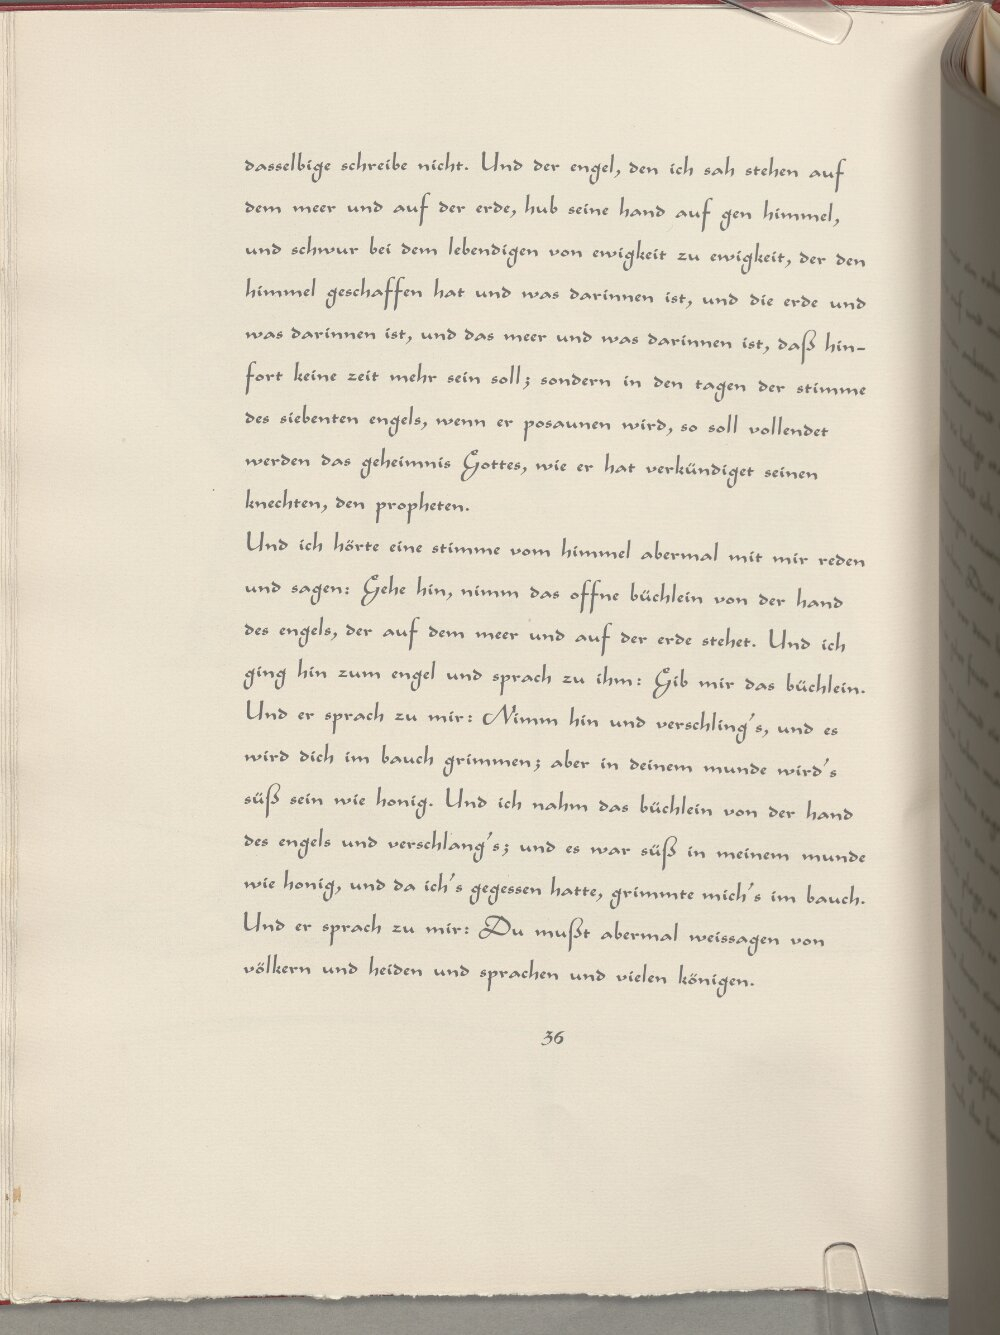 dasselbige schreibe nicht. Und der engel, den ich sah stehen auf
dem meer und auf der erde, hub seine hand auf gen himmel,
und schwur bei dem lebendigen von ewigkeit zu ewigkeit, der den
himmel geschaffen hat und was darinnen ist, und die erde und
was darinnen ist, und das meer und was darinnen ist, daß hin-
fort keine zeit mehr sein soll; sondern in den tagen der stimme
des siebenten engels, wenn er posaunen wird, so soll vollendet
werden das geheimnis Gottes, wie er hat verkündiget seinen
knechten, den propheten.
Und ich hörte eine stimme vom himmel abermal mit mir reden
und sagen: Gehe hin, nimm das offne büchlein von der hand
des engels, der auf dem meer und auf der erde stehet. Und ich
ging hin zum engel und sprach zu ihm: Gib mir das büchlein.
Und er sprach zu mir: Nimm hin und verschling's, und es
wird dich im bauch grimmen; aber in deinem munde wird's
süß sein wie honig. Und ich nahm das büchlein von der hand
des engels und verschlang's; und es war süß in meinem munde
wie honig, und da ich's gegessen hatte, grimmte mich's im bauch.
Und er sprach zu mir: Du mußt abermal weissagen von
völkern und heiden und sprachen und vielen königen.
36